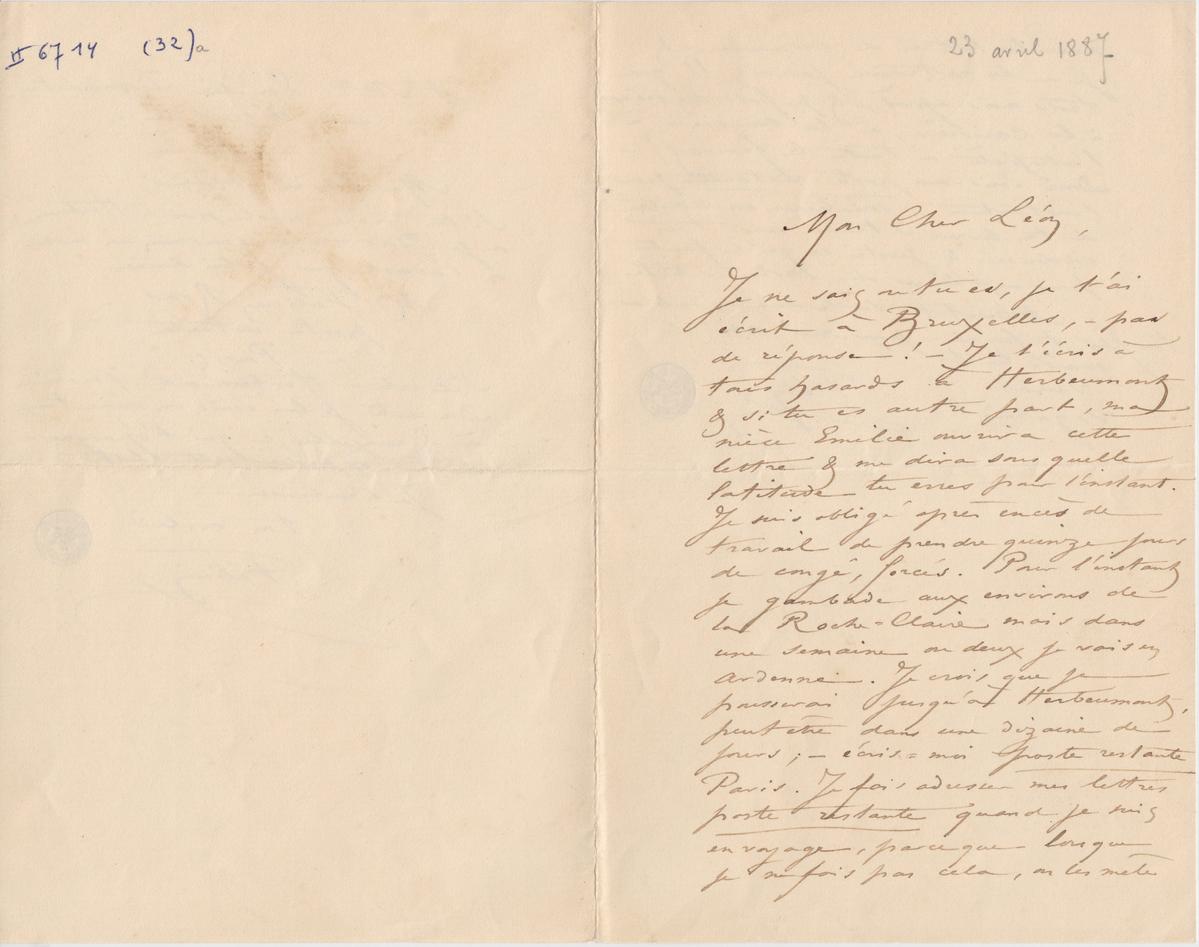 II 6714 (32)a
23 avril 1887
Mon Cher Léon,
Je ne sais ou tu es, je t'ai
écrit à Bruxelles, – pas
de réponse ! – Je t'écris à
tous hasards à Herbeumont
& si tu es autre part, ma
nièce Emilie ouvrira cette
lettre & me dira sous quelle
latitude tu erres pour l'instant.
Je suis obligé après excès de
travail de prendre quinze jours
de congé, forcés. Pour l'instant
je gambade aux environs de
la Roche-Claire mais dans
une semaine ou deux je vais en
Ardenne. Je crois que je
pousserai jusqu'à Herbeumont,
peut être dans une dizaine de
jours ; – écris-moi poste restante
Paris. Je fais adresser mes lettres
poste restante quand je suis
en voyage, parceque lorsque
je ne fais pas cela, on les